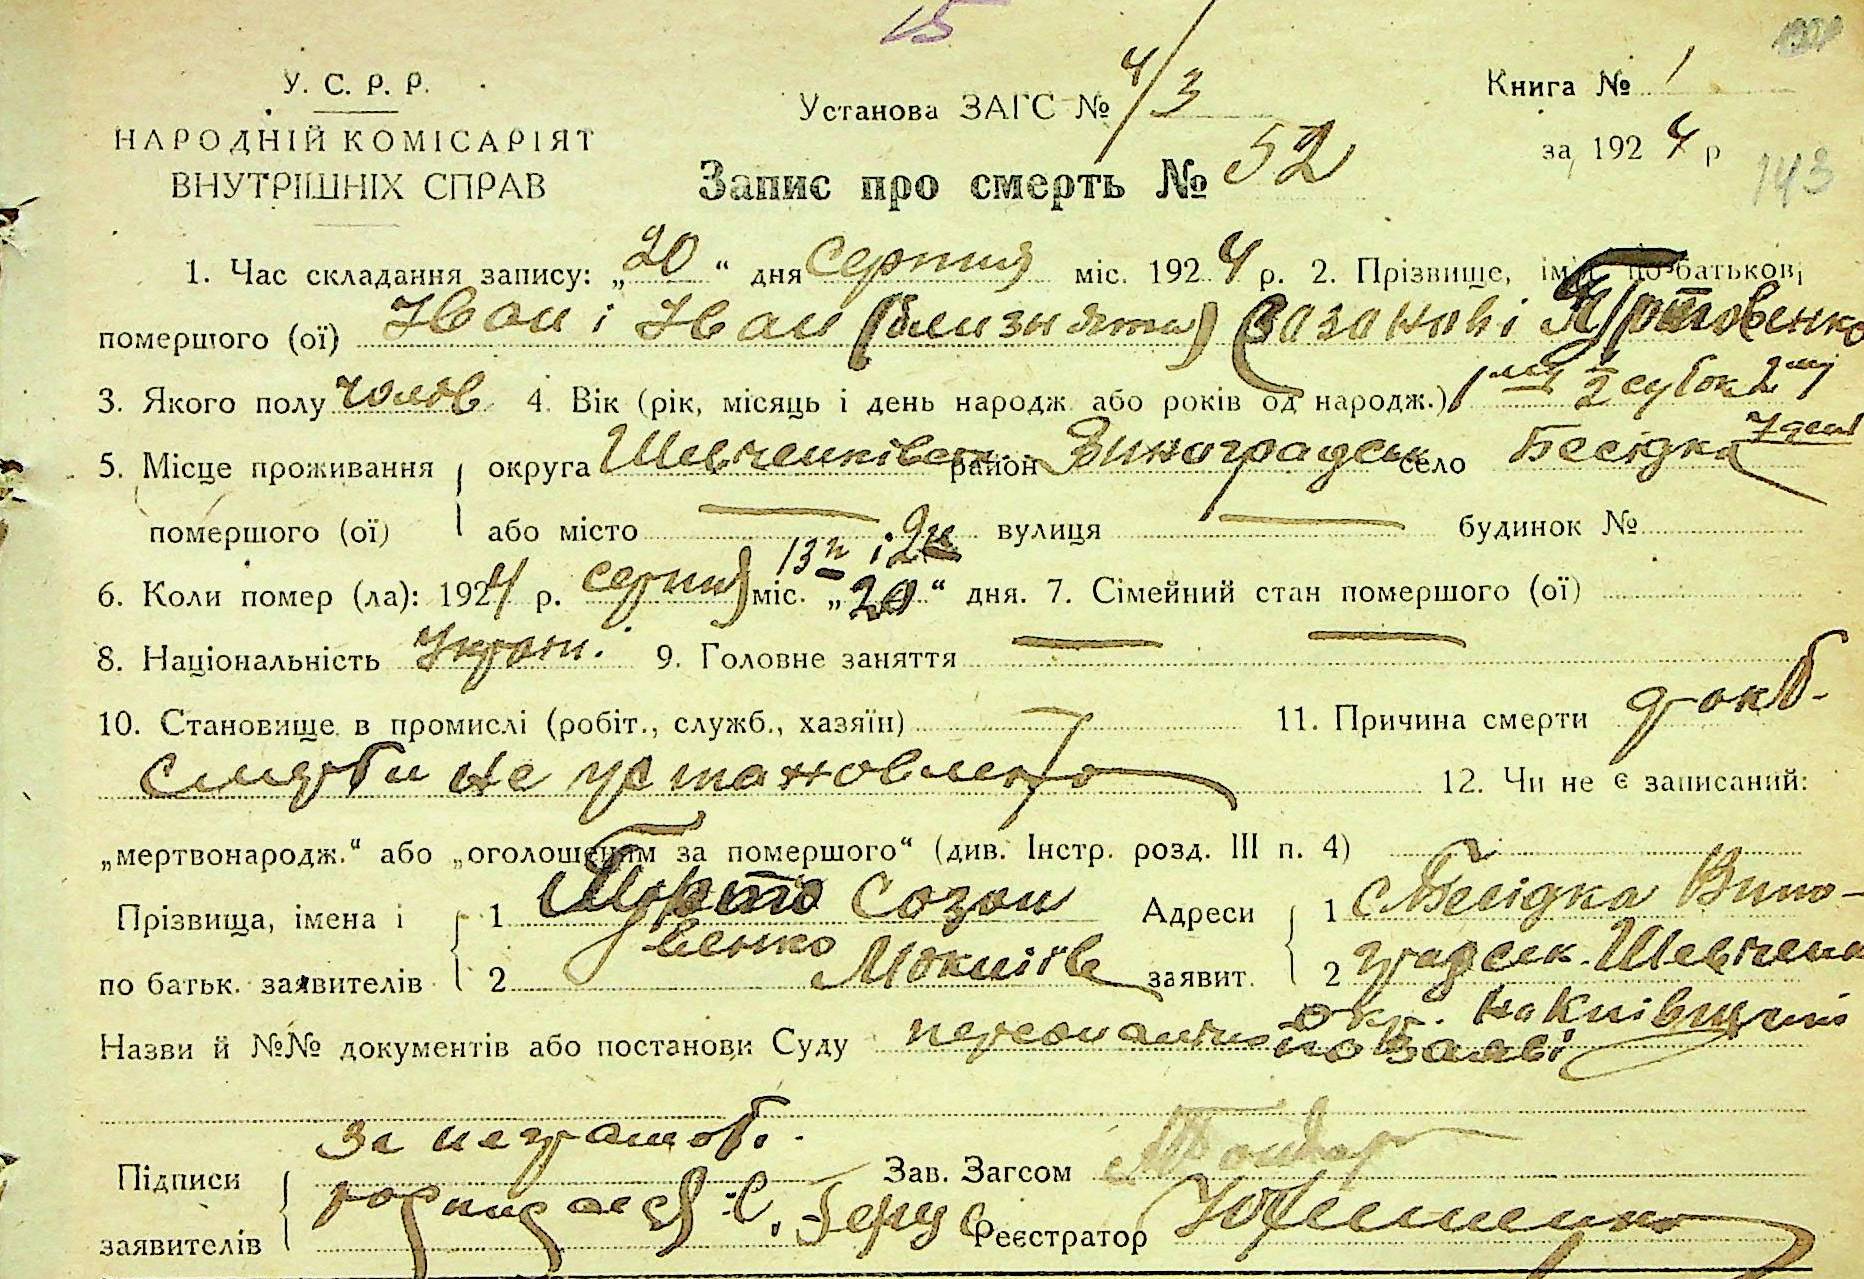 15
У. С. Р. Р.
НАРОДНІЙ КОМІСАРІЯТ
ВНУТРІШНІХ СПРАВ
Установа ЗАГС № 4/3
Книга № 1
за 1924 р
143
Запис про смерть № 52
1. Час складання запису: „20“ дня серпня міс. 1924 р. 2. Прізвище, ім'я, по-батькові
помершого (ої) Іван і Іван (близнята) Сазонові
3. Якого полу чолов 4. Вік (рік, місяць і день народж. або років од народж.) 1 1/2 суток 2
7 ден
5. Місце проживання округа Шевченківськ район Виноградськ село Бесідка
помершого (ої) або місто — вулиця — будинок №
13 і 2
6. Коли помер (ла): 1924 р. серпня міс. „20“ дня. 7. Сімейний стан помершого (ої)
8. Національність Україн. 9. Головне заняття — —
10. Становище в промислі (робіт., служб., хазяїн) 11. Причина смерти
смерти не установлено 12. Чи не є записаний:
„мертвонародж.“ або „оголошеним за помершого“ (див. Інстр. розд. III п. 4)
Прізвища, імена і 1 Созон Адреси 1 с Бесідка Вино-
по батьк. заявителів 2 венко заявит. 2 градськ. Шевченк
окр. на Київщині
Назви й №№ документів або постанови Суду по заяві
за неграмот.
Підписи Зав. Загсом
заявителів Реєстратор